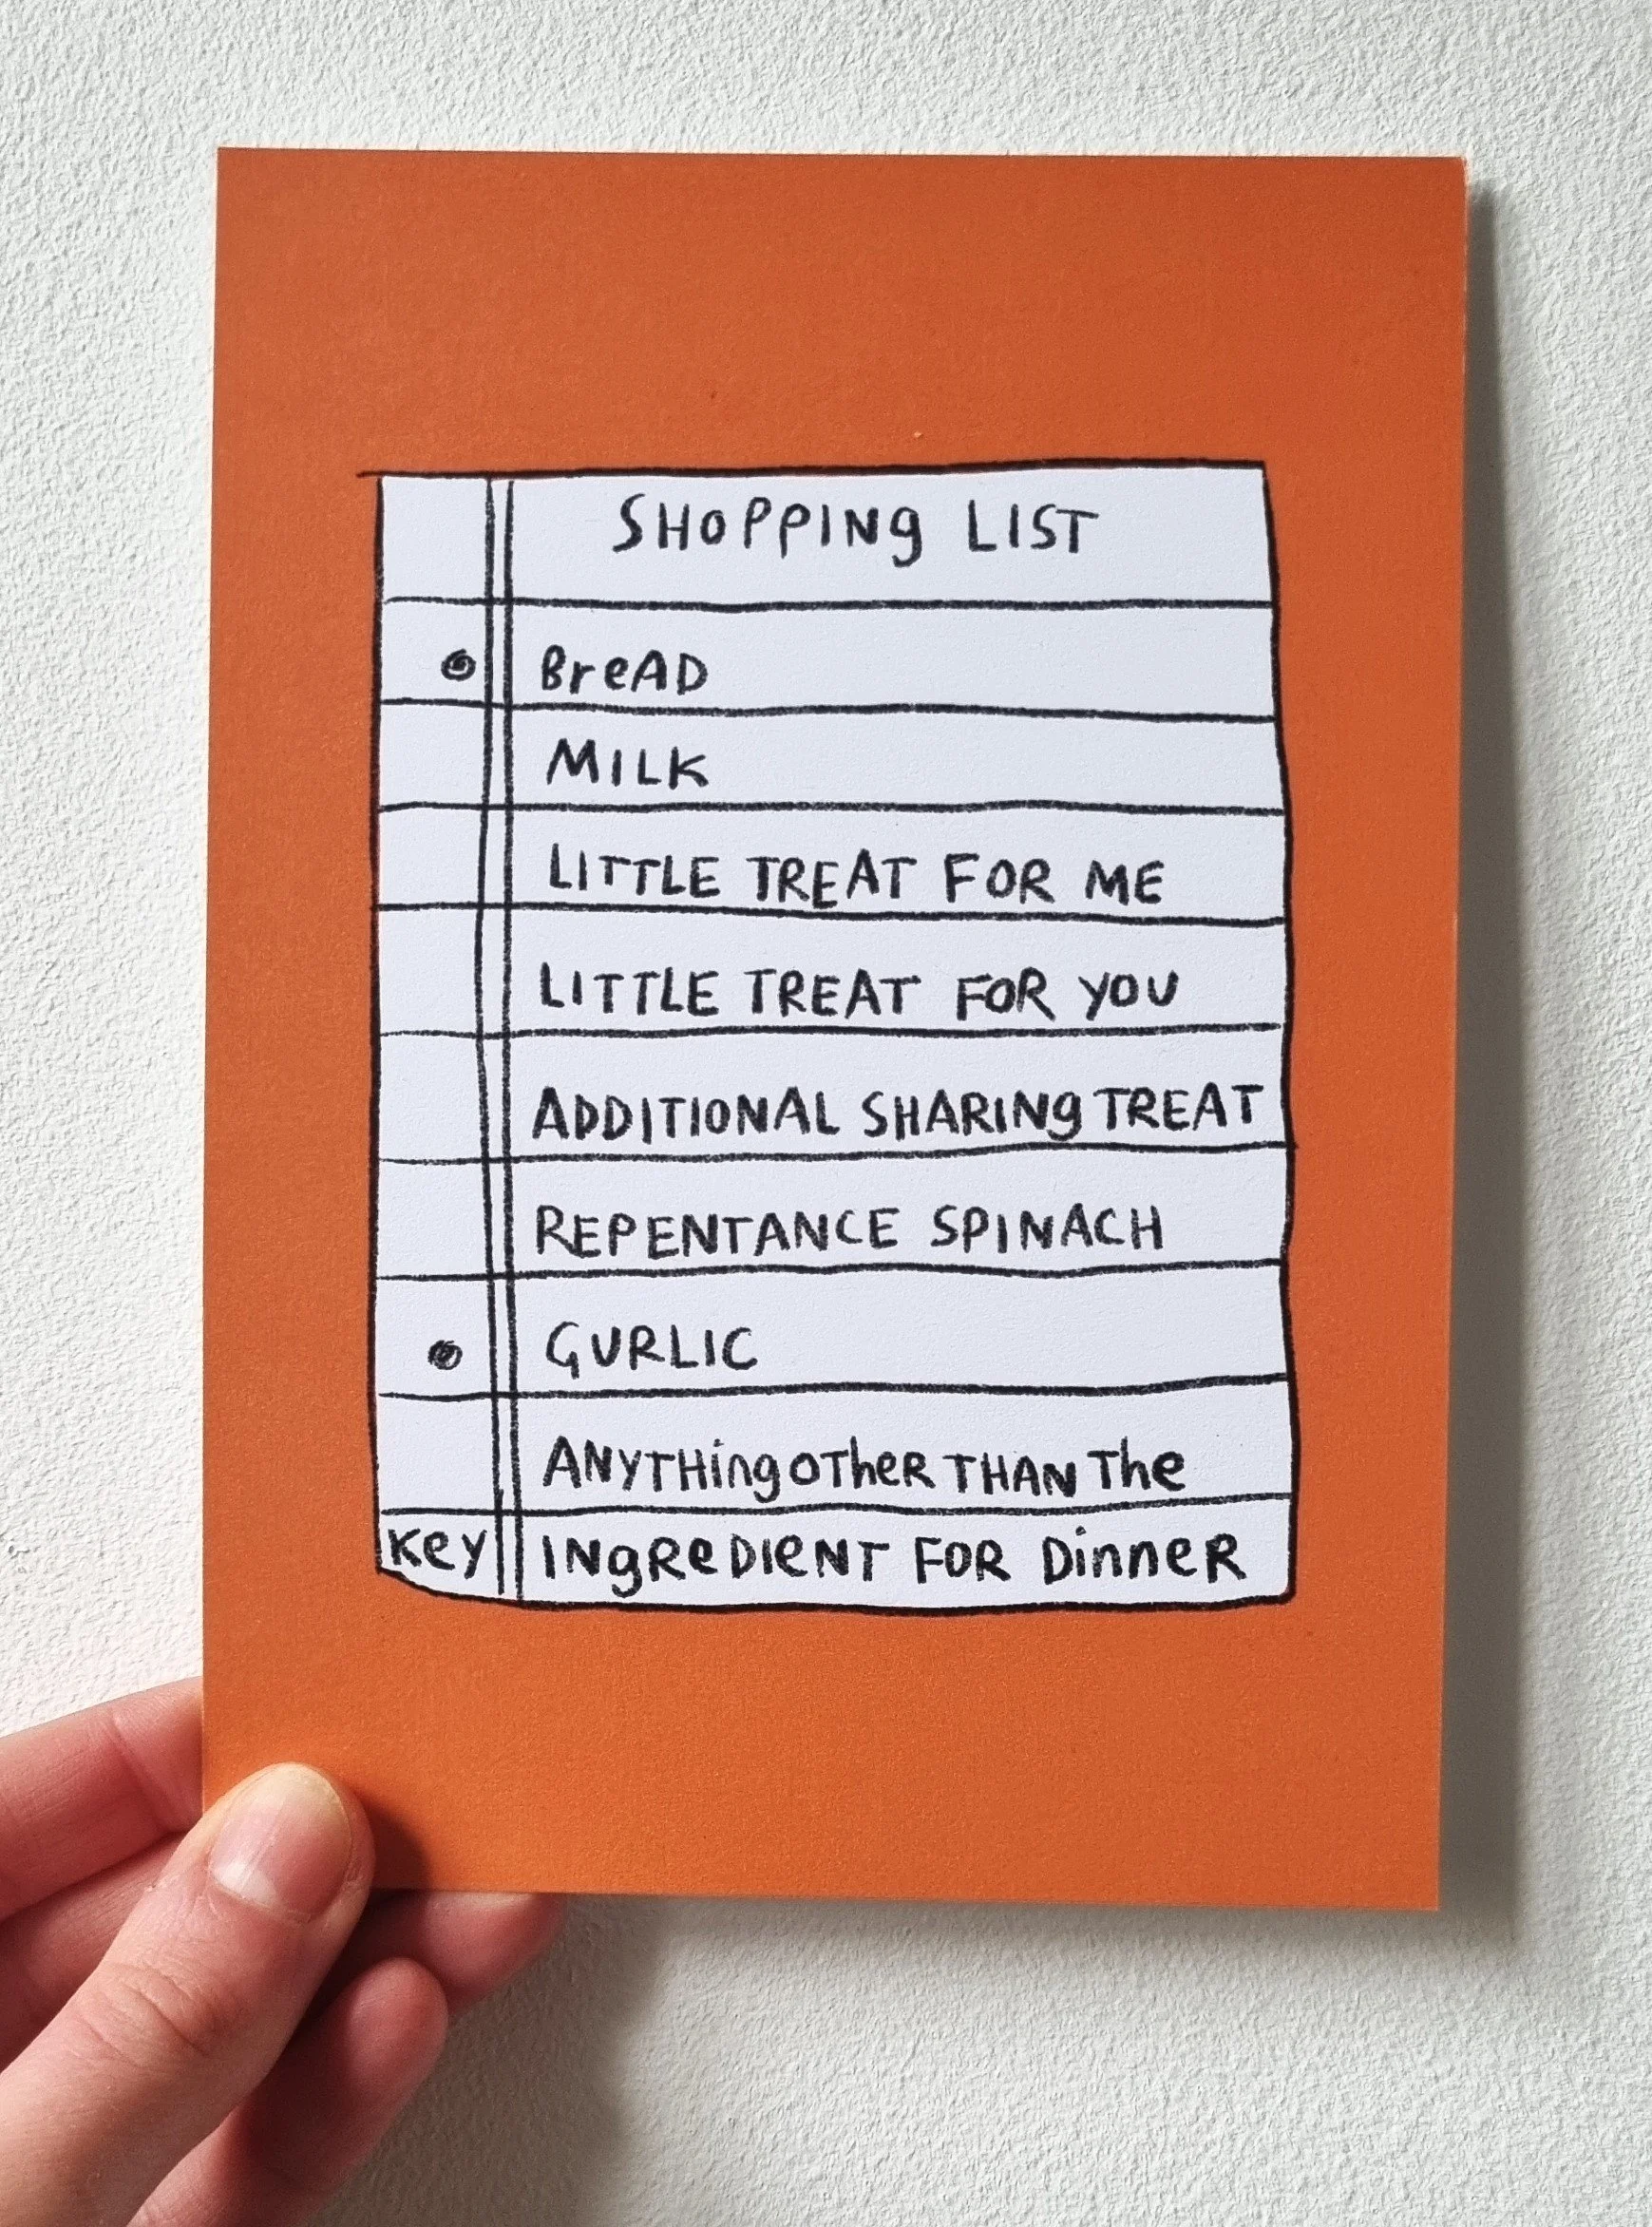 SHOPPING LIST
BreAD
MILK
LITTLE TREAT FOR ME
LITTLE TREAT FOR YOU
ADDITIONAL SHARINg TREAT
REPENTANCE SPINACH
GURLIC
ANYTHing OTheR THAN The
Key INgReDIeNT FOR DinneR